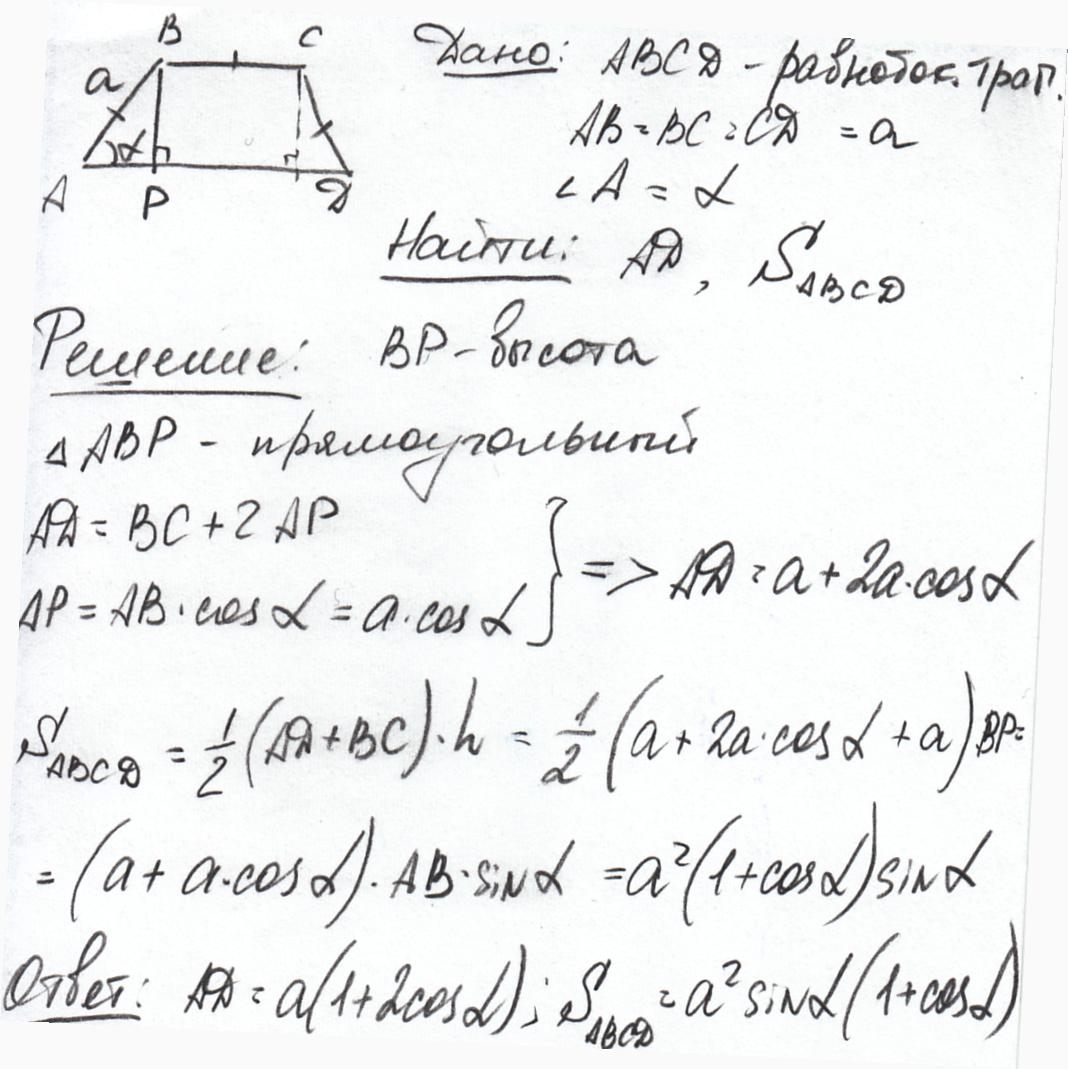 B C
a
α
A P D
Дано: ABCD - равнобок. трап.
AB = BC = CD = a
∠A = α
Найти: AD, S_ABCD
Решение: BP - высота
△ABP - прямоугольный
AD = BC + 2AP
AP = AB · cos α = a · cos α } => AD = a + 2a · cos α
S_ABCD = 1/2 (AD + BC) · h = 1/2 (a + 2a · cos α + a) BP =
= (a + a · cos α) · AB · sin α = a² (1 + cos α) sin α
Ответ: AD = a(1 + 2cos α); S_ABCD = a² sin α (1 + cos α)